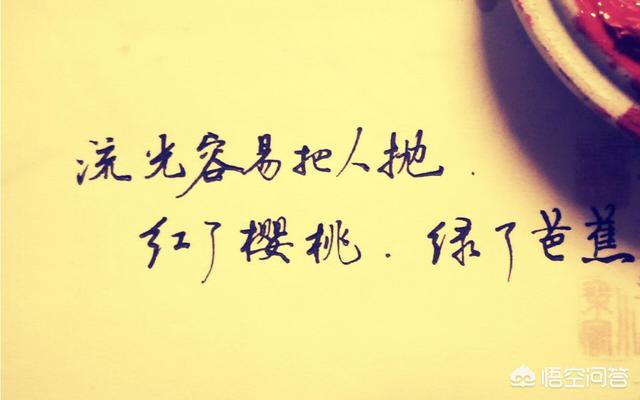 流光容易把人抛.
红了樱桃.绿了芭蕉
悟空问答